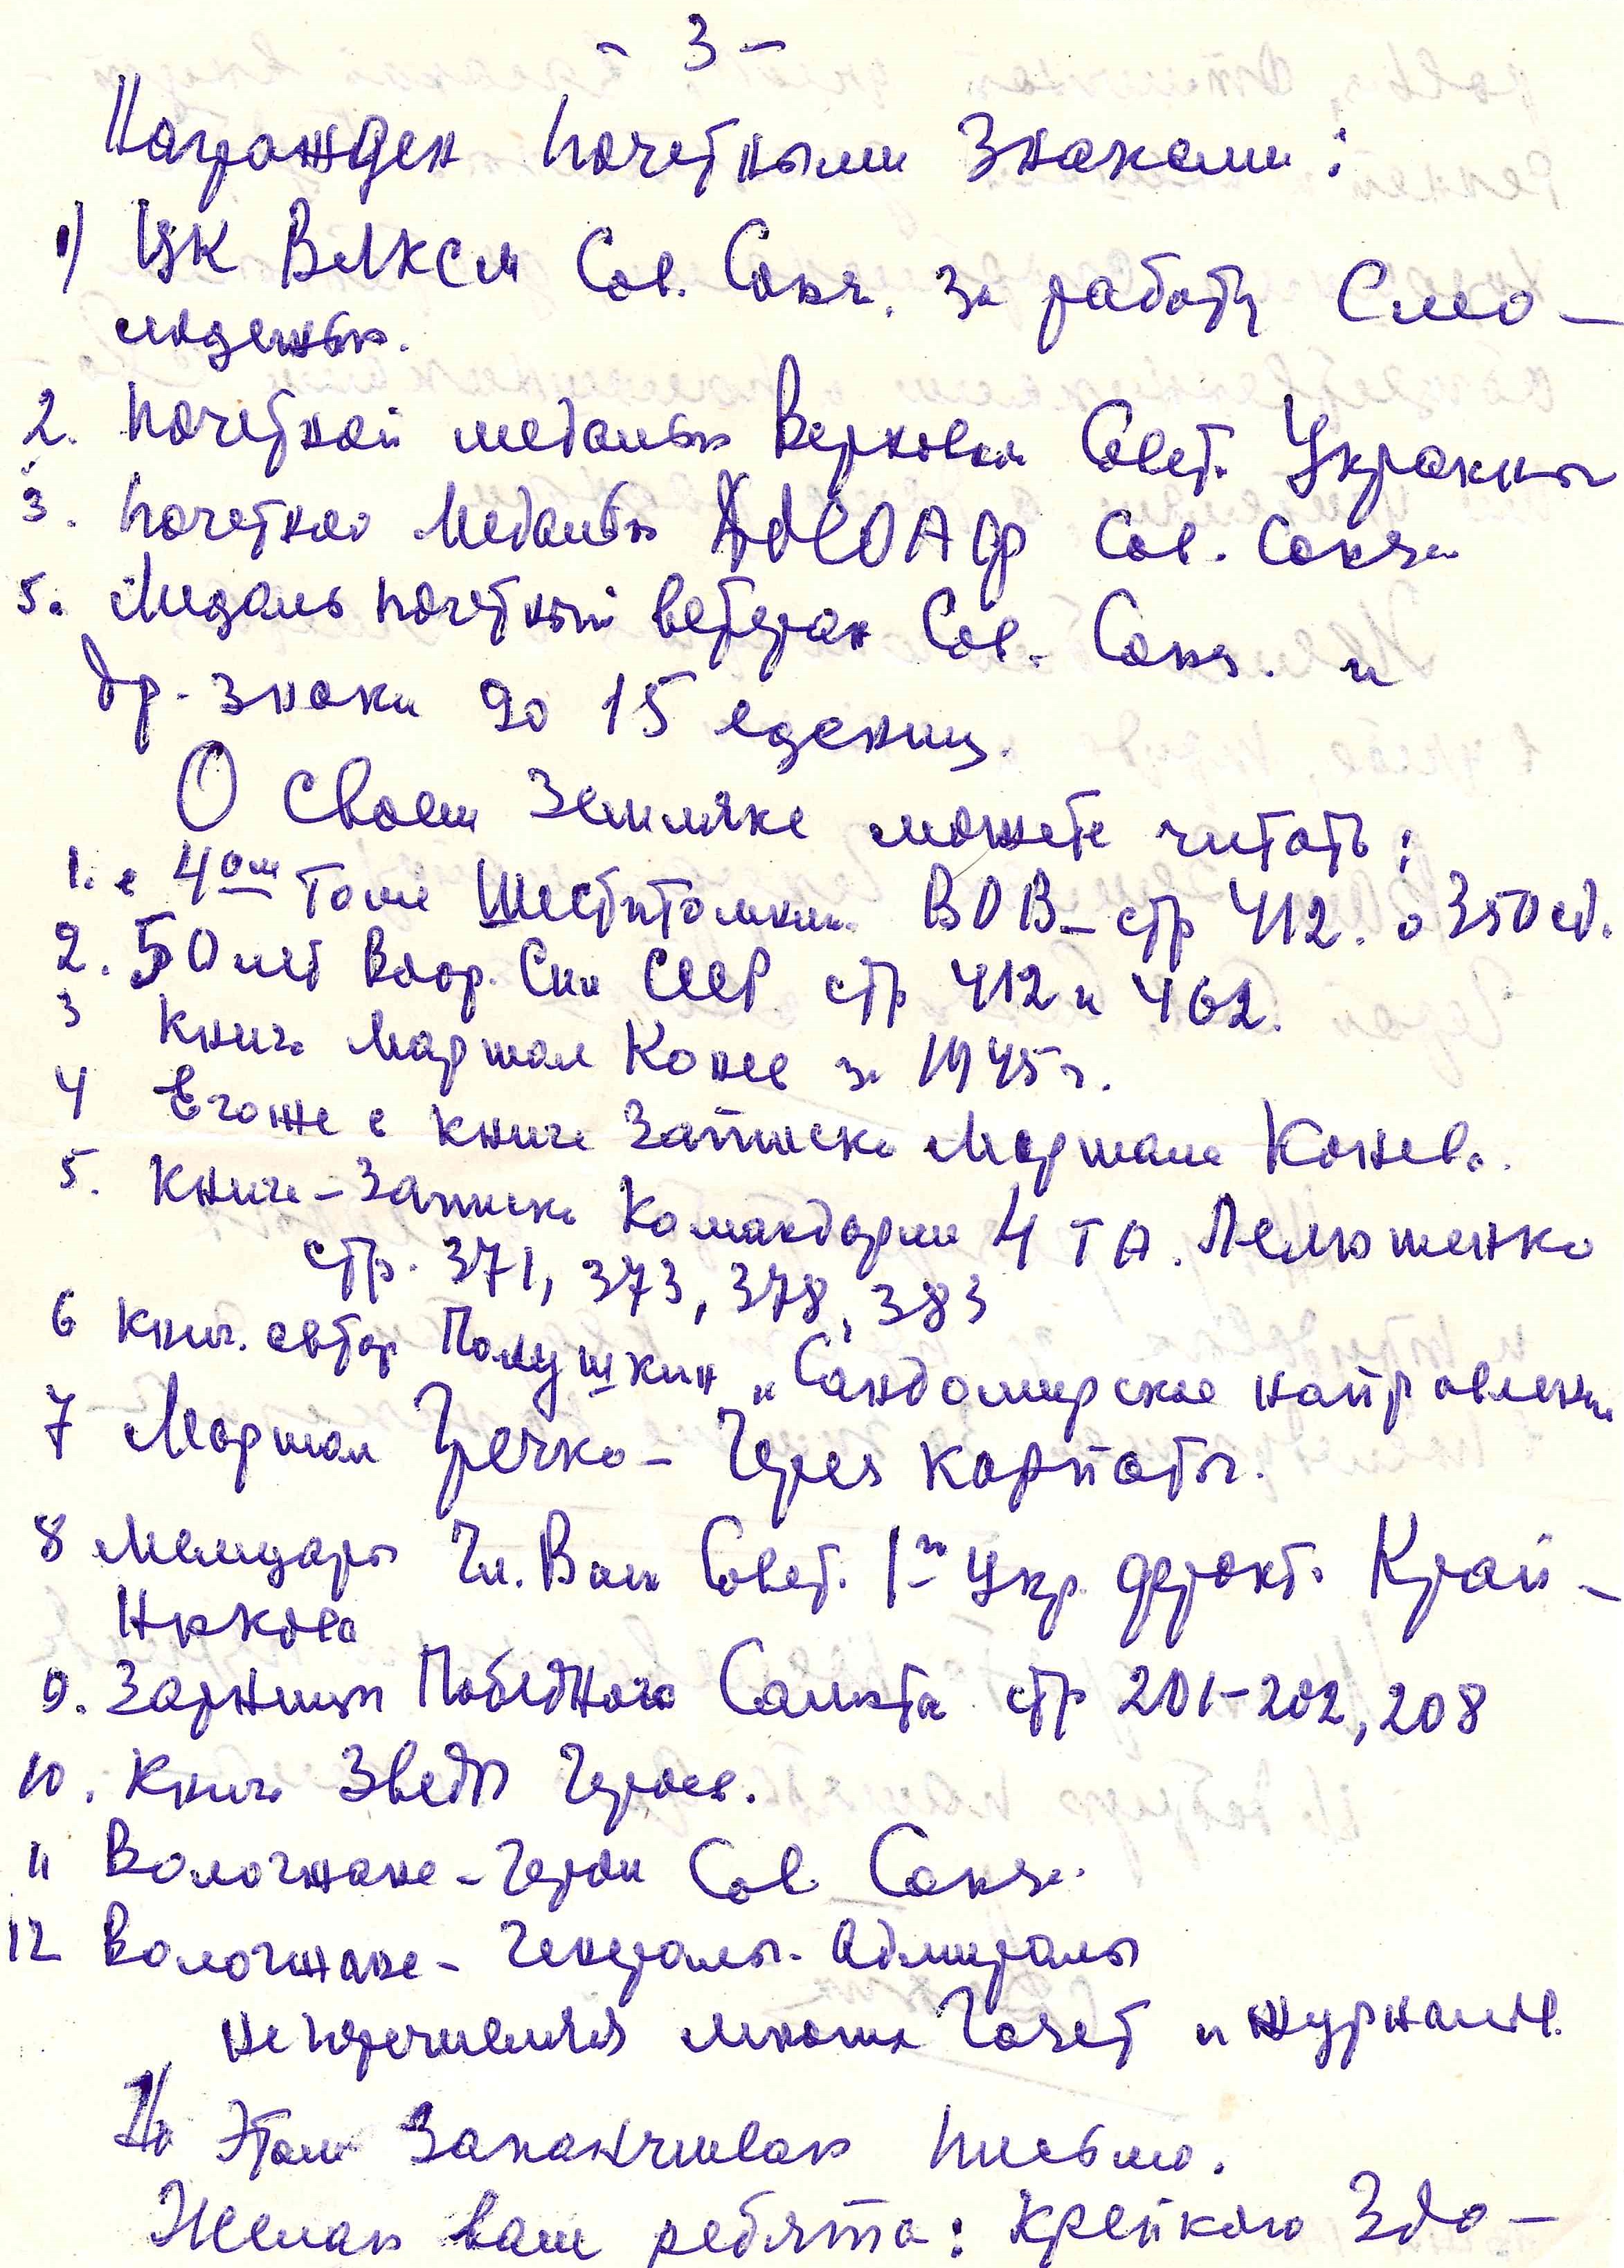 - 3 -
Награжден почетными знаками:
1) ЦК ВЛКСМ Сов. Союз. за работу с мо-
лодежью.
2. Почетной медалью Верховн Совет. Украины
3. Почетной Медалью ДОСОАФ Сов. Союза
5. Медаль почетный ветеран Сов. Союз. и
др. знаки до 15 едениц.
О своем земляке можете читать:
1. в 4ом томе Шеститомник ВОВ - стр 412. о 350 сд.
2. 50 лет Воор. Сил СССР стр 412 и 462.
3 Книга Маршал Конев за 1945 г.
4 Его же в книге Записки Маршала Конева.
5. Книга - Записки Командарм 4 ТА. Лелюшенко
стр. 371, 373, 378, 383
6 Книг. автор Полушкин „Сандомирское направлени
7 Маршал Гречко - Через Карпаты.
8 Мемуары Чл. Воен Совет. 1го Укр. фронт. Край-
нюкова
9. Зарницы Победного Салюта стр 201-202, 208
10. Книга Звезды Героев.
11 Вологжане - Герои Сов Союза.
12 Вологжане - Генералы - Адмиралы
не перечисляя многих Газет и журналов.
На этом заканчиваю письмо.
Желаю вам ребята: Крепкого здо-